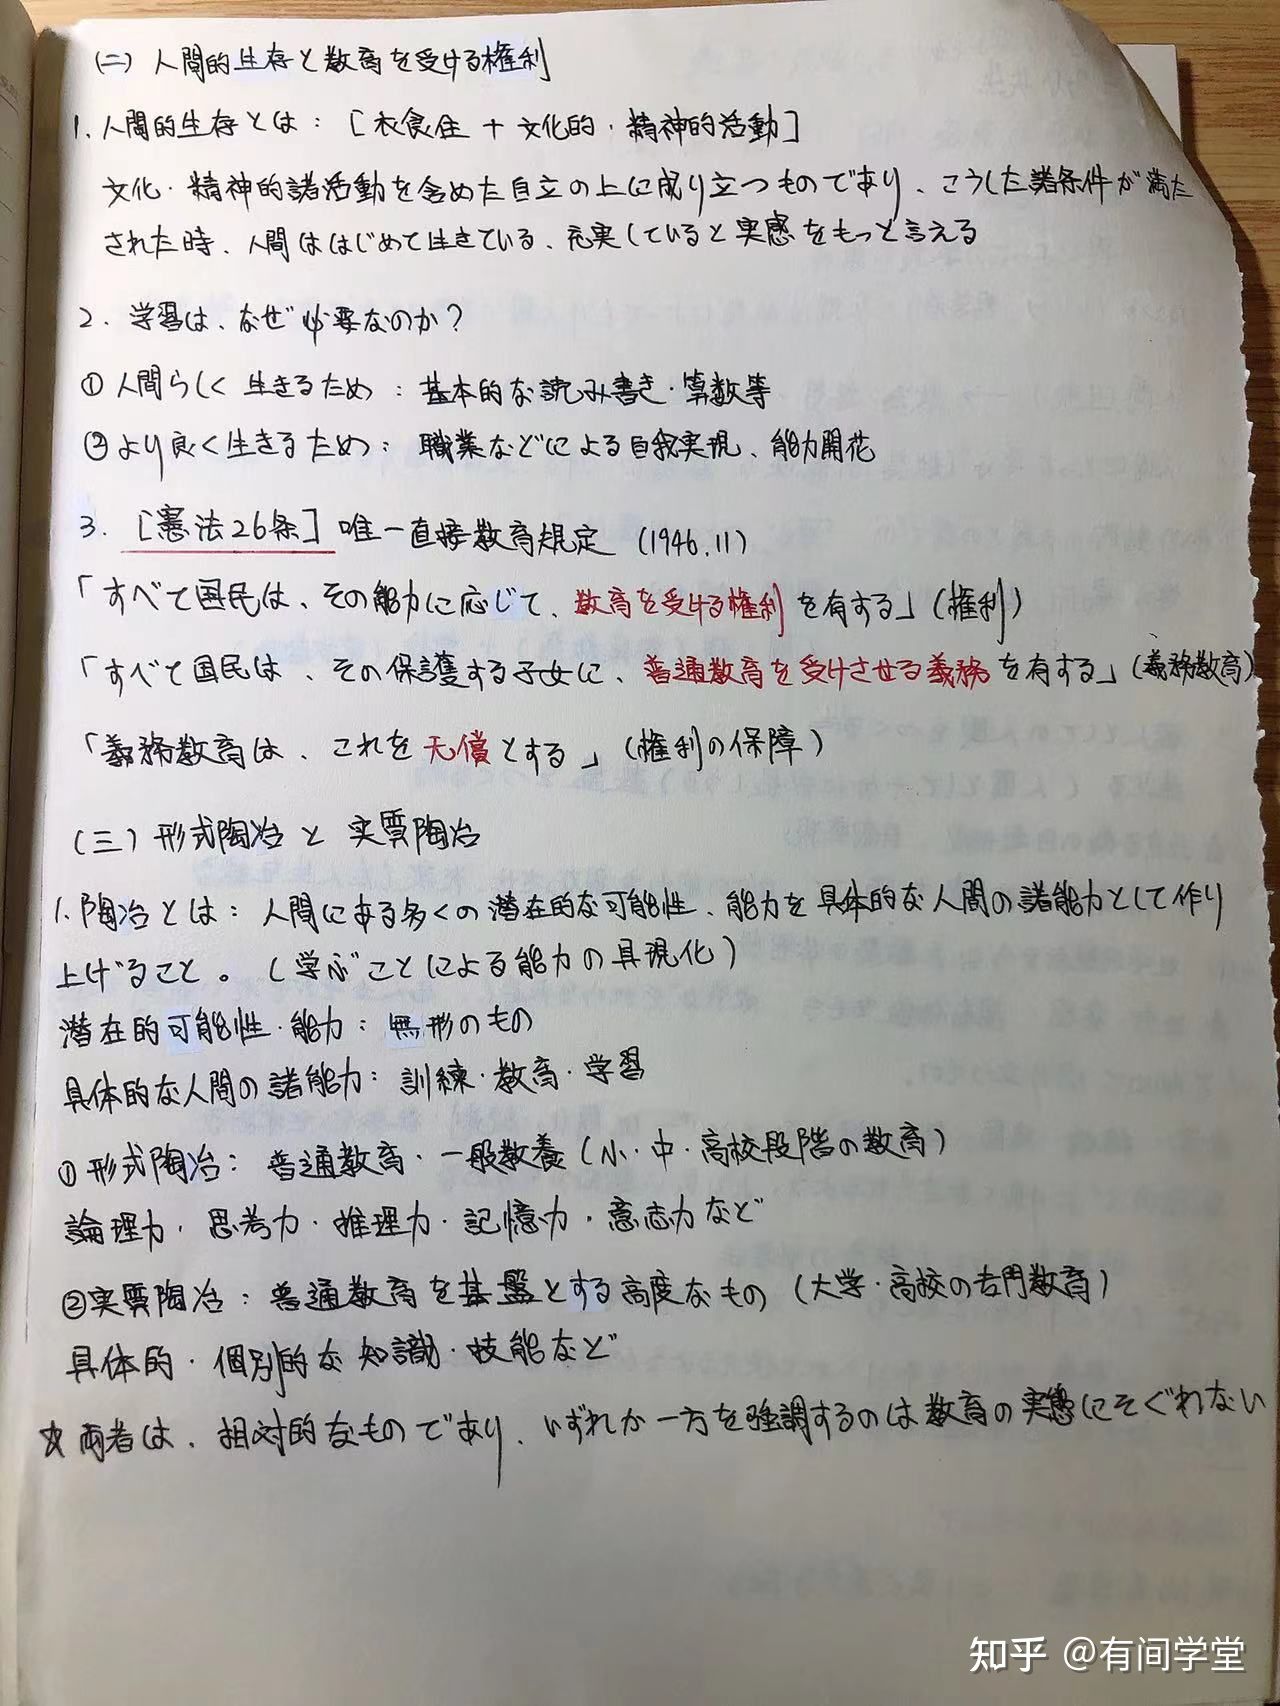 (二) 人間的生存と教育を受ける権利
1. 人間的生存とは: [衣食住 + 文化的・精神的活動]
文化・精神的諸活動を含めた自立の上に成り立つものであり、こうした諸条件が満た
された時、人間ははじめて生きている、充実していると実感をもっと言える
2. 学習は、なぜ必要なのか?
① 人間らしく生きるため: 基本的な読み書き・算数等
② より良く生きるため: 職業などによる自我実現、能力開花
3. [憲法26条] 唯一直接教育規定 (1946.11)
「すべて国民は、その能力に応じて、教育を受ける権利を有する」(権利)
「すべて国民は、その保護する子女に、普通教育を受けさせる義務を有する」(義務教育)
「義務教育は、これを无償とする」(権利の保障)
(三) 形式陶冶と実質陶冶
1. 陶冶とは: 人間にある多くの潜在的な可能性、能力を具体的な人間の諸能力として作り
上げること。(学ぶことによる能力の具現化)
潜在的可能性・能力: 無形のもの
具体的な人間の諸能力: 訓練・教育・学習
① 形式陶冶: 普通教育・一般教養 (小・中・高校段階の教育)
論理力・思考力・推理力・記憶力・意志力など
② 実質陶冶: 普通教育を基盤とする高度なもの (大学・高校の专門教育)
具体的・個別的な知識・技能など
☆ 両者は、相対的なものであり、いずれか一方を強調するのは教育の実態にそぐわない
知乎 @有间学堂